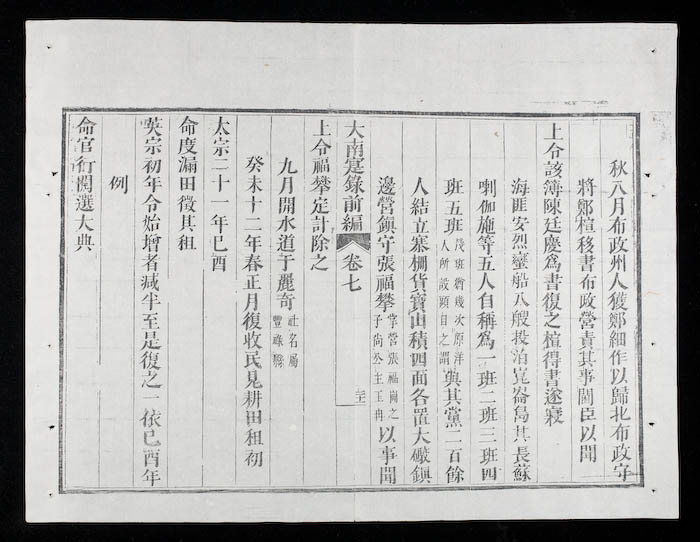 秋八月布政州人獲鄭細作以歸北布政守
將鄭楦移書布政營責其事閫臣以聞
上令該簿陳廷慶爲書復之楦得書遂寢
海匪安烈蠻船八艘投泊崑崙島其長蘇
喇伽施等五人自稱爲一班二班三班四
班五班幾班猶幾次原洋人所設頭目之謂與其黨二百餘
人結立寨柵貨寶山積四面各置大礮鎮
邊營鎮守張福攀掌營張福崗之子尚公主玉冉以事聞
大南寔錄前編 卷七 二十
上令福攀定計除之
九月開水道于麗奇社名屬豐祿縣
癸未十二年春正月復收民見耕田租初
太宗二十一年己酉
命度漏田徵其租
英宗初年令始增者減半至是復之一依己酉年
例
命官行閱選大典